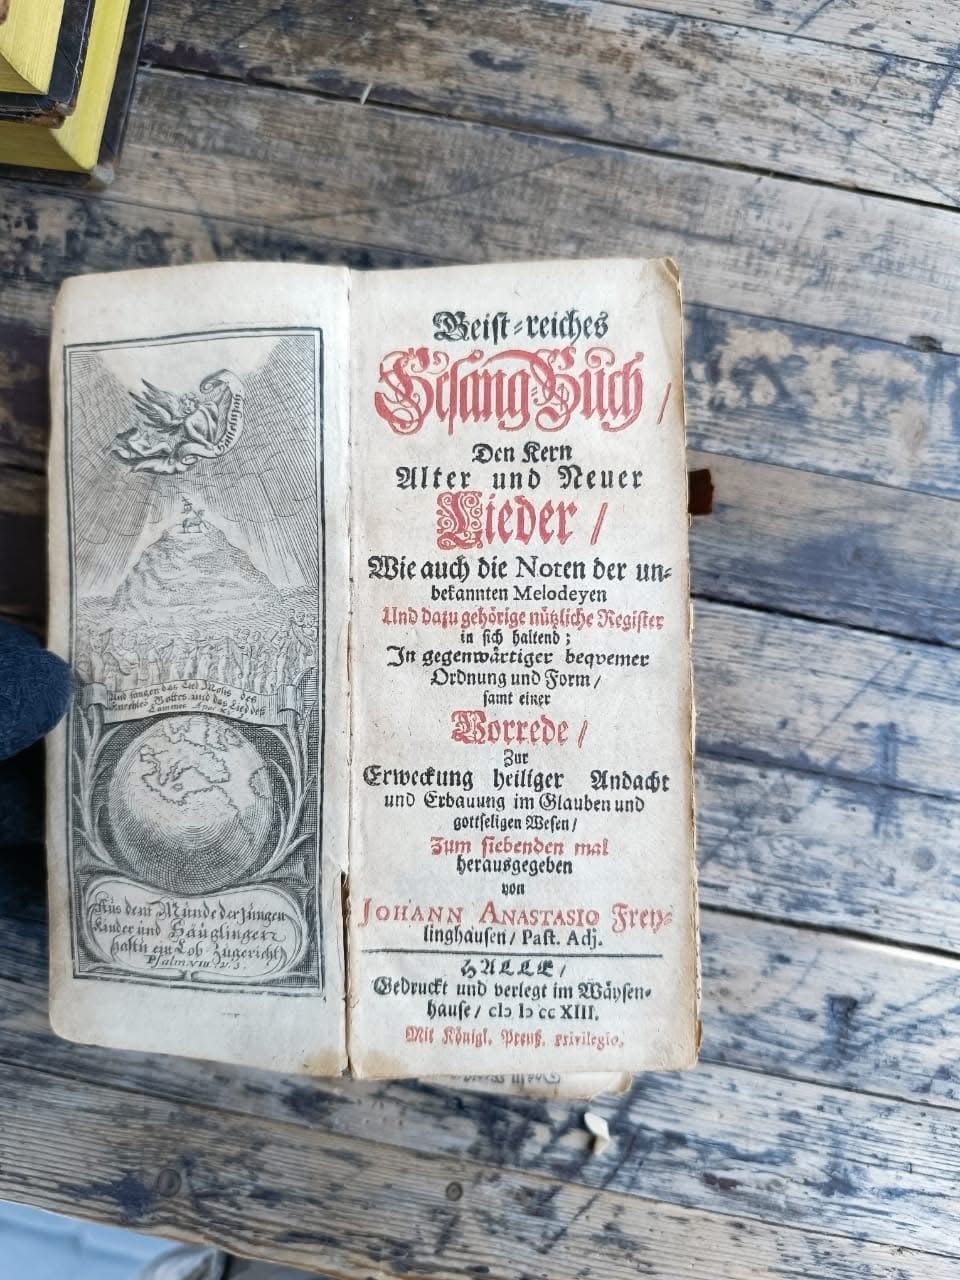 Hallelujah
Und sungen das Lied Mosis des
Knechtes Gottes und das Lied des
Lammes Apoc.
Aus dem Munde der jungen
Kinder und Säuglingen
hastu ein Lob zugericht
Psalm VIII. v. 3.
Geist-reiches
Gesang-Buch /
Den Kern
Alter und Neuer
Lieder /
Wie auch die Noten der un-
bekannten Melodeyen
Und dazu gehörige nützliche Register
in sich haltend ;
In gegenwärtiger beqvemer
Ordnung und Form /
samt einer
Vorrede /
Zur
Erweckung heiliger Andacht
und Erbauung im Glauben und
gottseligen Wesen /
Zum siebenden mal
herausgegeben
von
JOHANN ANASTASIO Frey-
linghausen / Past. Adj.
HALLE /
Gedruckt und verlegt im Wäysen-
hause / cIɔ Iɔ cc XIII.
Mit Königl. Preuß. privilegio.